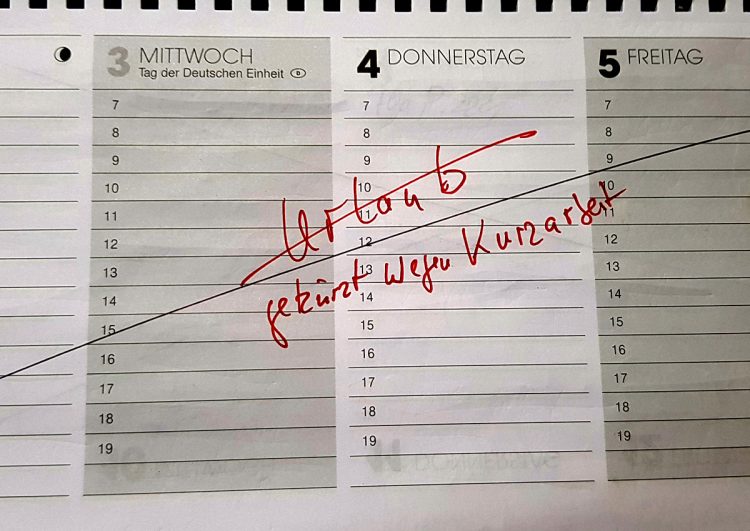 3 MITTWOCH
Tag der Deutschen Einheit D
7
8
9
10
11
12
13
14
15
16
17
18
19
4 DONNERSTAG
7
8
9
10
11
12
13
14
15
16
17
18
19
5 FREITAG
7
8
9
10
11
12
13
14
15
16
17
18
19
Urlaub
gekürzt wegen Kurzarbeit